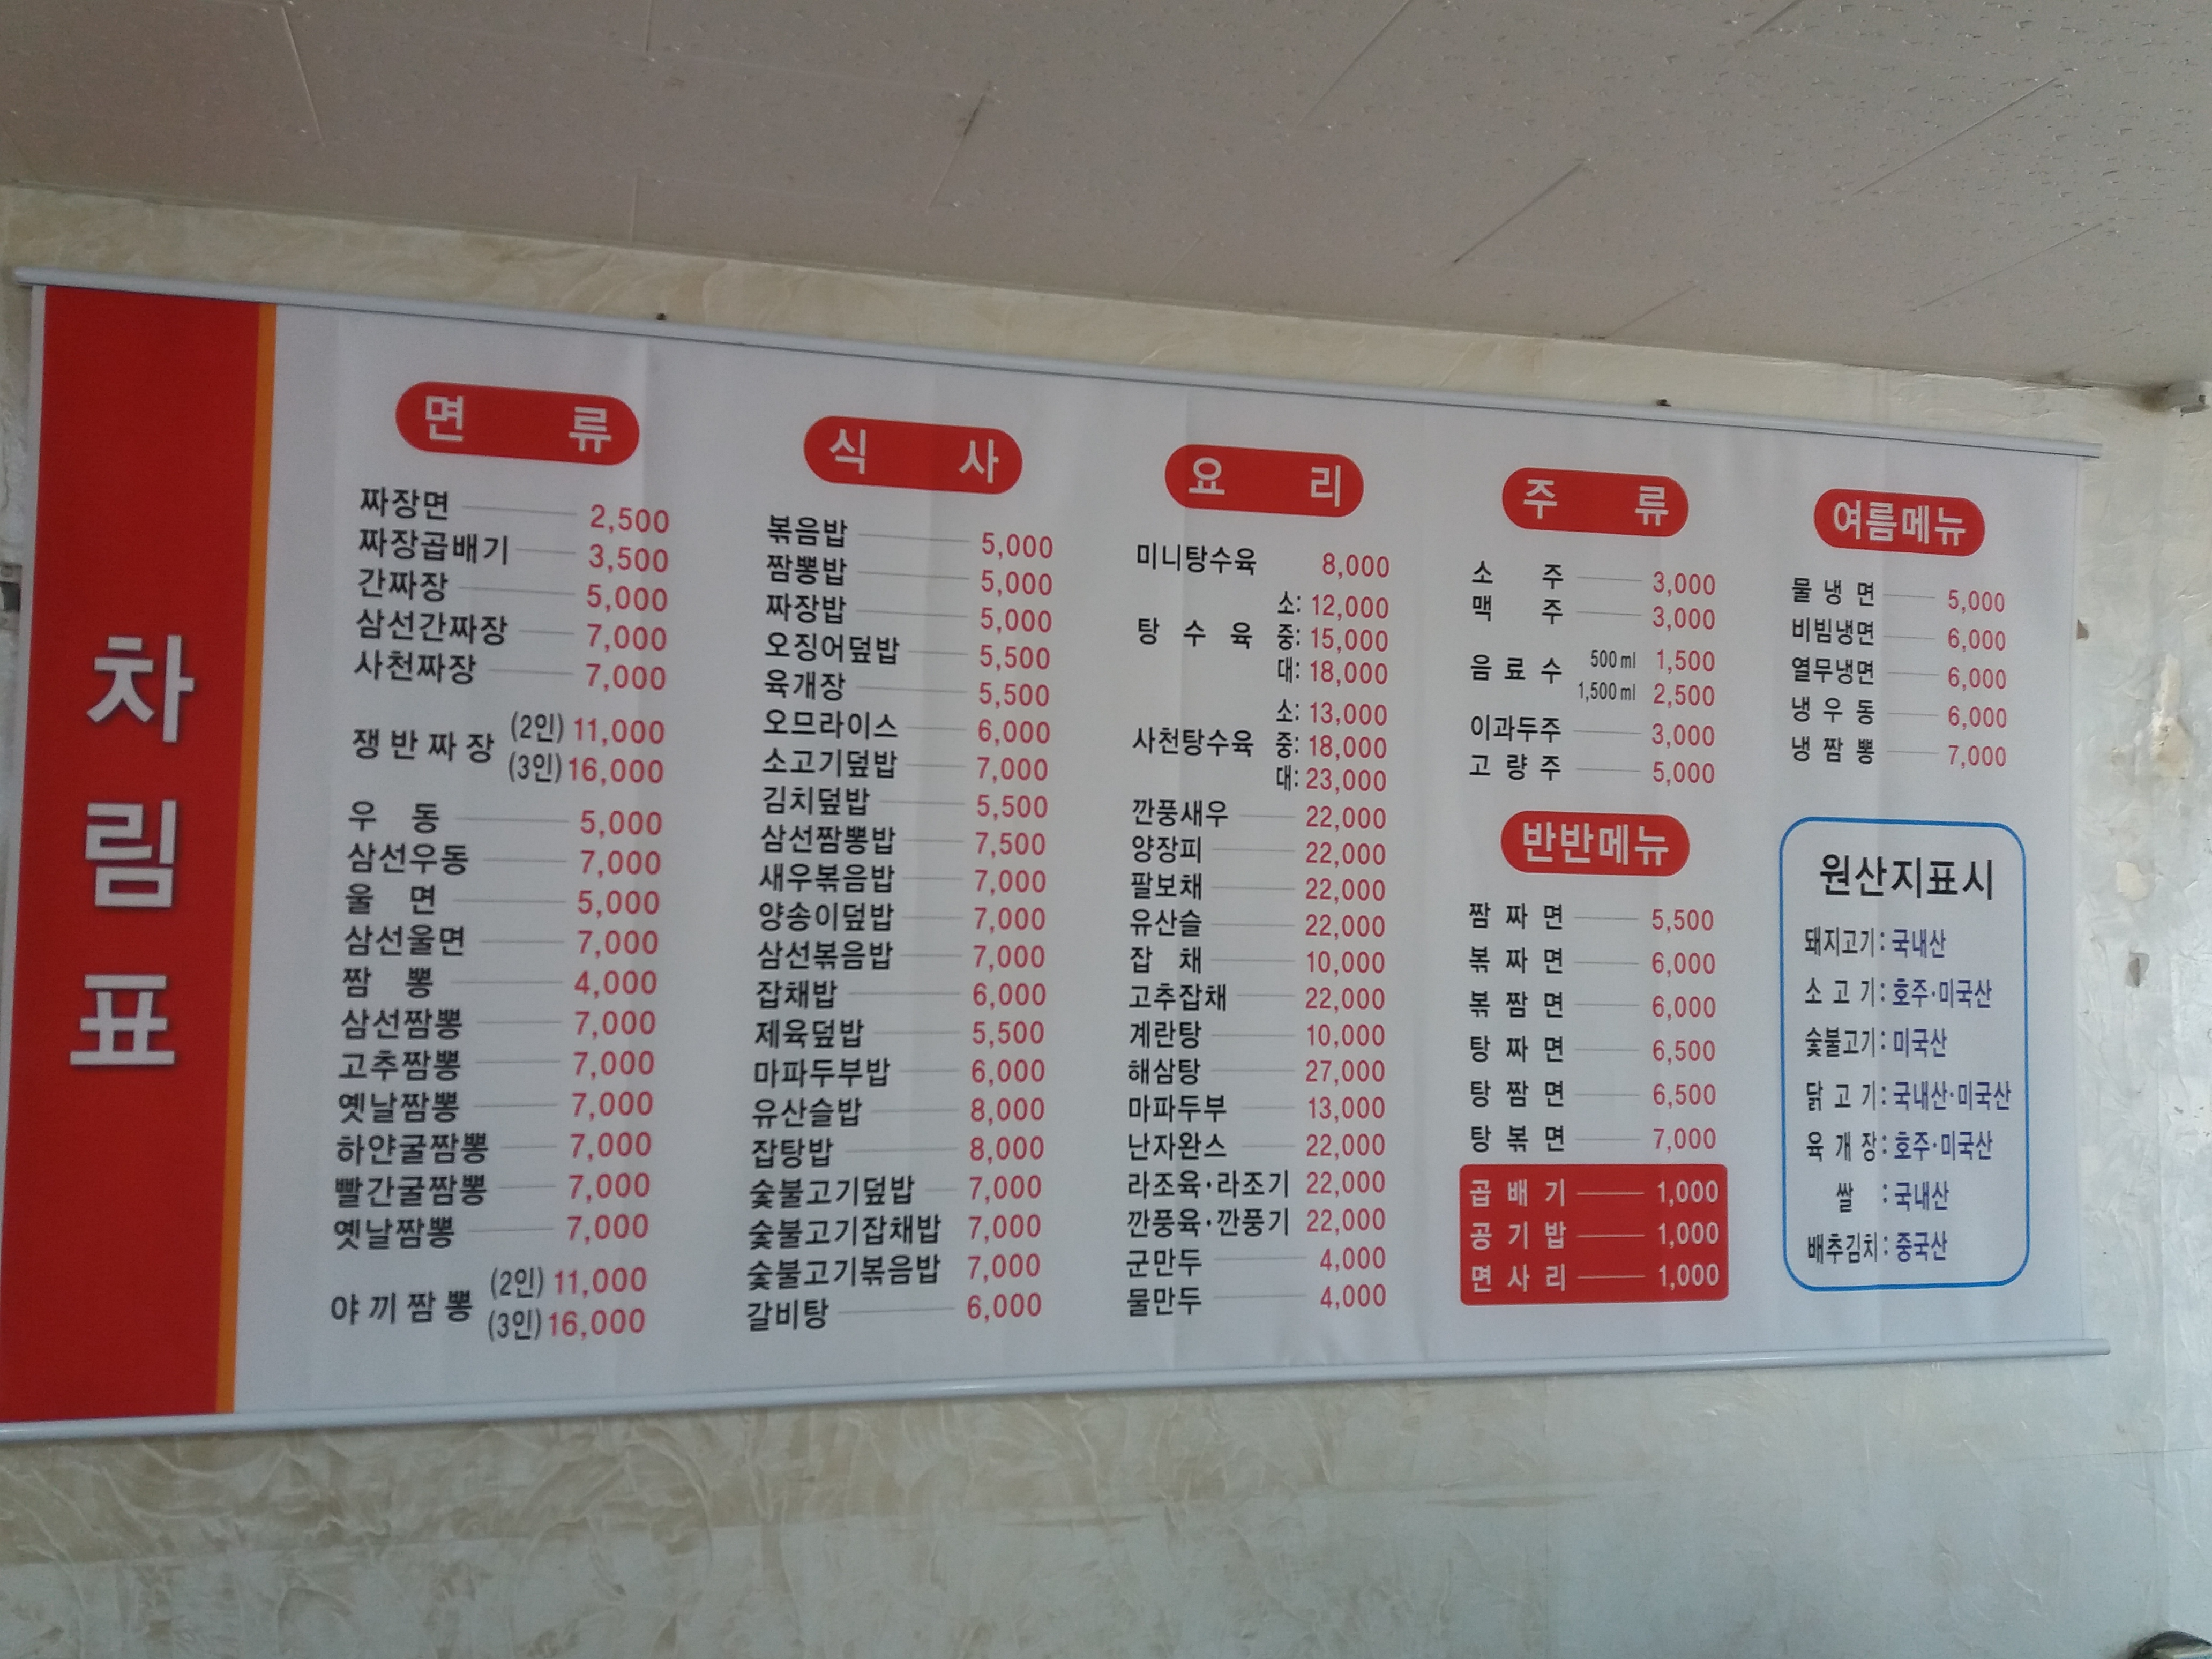 차림표
면 류
짜장면 2,500
짜장곱배기 3,500
간짜장 5,000
삼선간짜장 7,000
사천짜장 7,000
쟁반짜장 (2인) 11,000
(3인) 16,000
우 동 5,000
삼선우동 7,000
울 면 5,000
삼선울면 7,000
짬 뽕 4,000
삼선짬뽕 7,000
고추짬뽕 7,000
옛날짬뽕 7,000
하얀굴짬뽕 7,000
빨간굴짬뽕 7,000
옛날짬뽕 7,000
야끼짬뽕 (2인) 11,000
(3인) 16,000
식 사
볶음밥 5,000
짬뽕밥 5,000
짜장밥 5,000
오징어덮밥 5,500
육개장 5,500
오므라이스 6,000
소고기덮밥 7,000
김치덮밥 5,500
삼선짬뽕밥 7,500
새우볶음밥 7,000
양송이덮밥 7,000
삼선볶음밥 7,000
잡채밥 6,000
제육덮밥 5,500
마파두부밥 6,000
유산슬밥 8,000
잡탕밥 8,000
숯불고기덮밥 7,000
숯불고기잡채밥 7,000
숯불고기볶음밥 7,000
갈비탕 6,000
요 리
미니탕수육 8,000
소: 12,000
탕 수 육 중: 15,000
대: 18,000
소: 13,000
사천탕수육 중: 18,000
대: 23,000
깐풍새우 22,000
양장피 22,000
팔보채 22,000
유산슬 22,000
잡 채 10,000
고추잡채 22,000
계란탕 10,000
해삼탕 27,000
마파두부 13,000
난자완스 22,000
라조육·라조기 22,000
깐풍육·깐풍기 22,000
군만두 4,000
물만두 4,000
주 류
소 주 3,000
맥 주 3,000
음료수 500ml 1,500
1,500ml 2,500
이과두주 3,000
고량주 5,000
반반메뉴
짬짜면 5,500
볶짜면 6,000
볶짬면 6,000
탕짜면 6,500
탕짬면 6,500
탕볶면 7,000
곱배기 1,000
공기밥 1,000
면사리 1,000
여름메뉴
물냉면 5,000
비빔냉면 6,000
열무냉면 6,000
냉우동 6,000
냉짬뽕 7,000
원산지표시
돼지고기: 국내산
소고기: 호주·미국산
숯불고기: 미국산
닭고기: 국내산·미국산
육개장: 호주·미국산
쌀 : 국내산
배추김치: 중국산